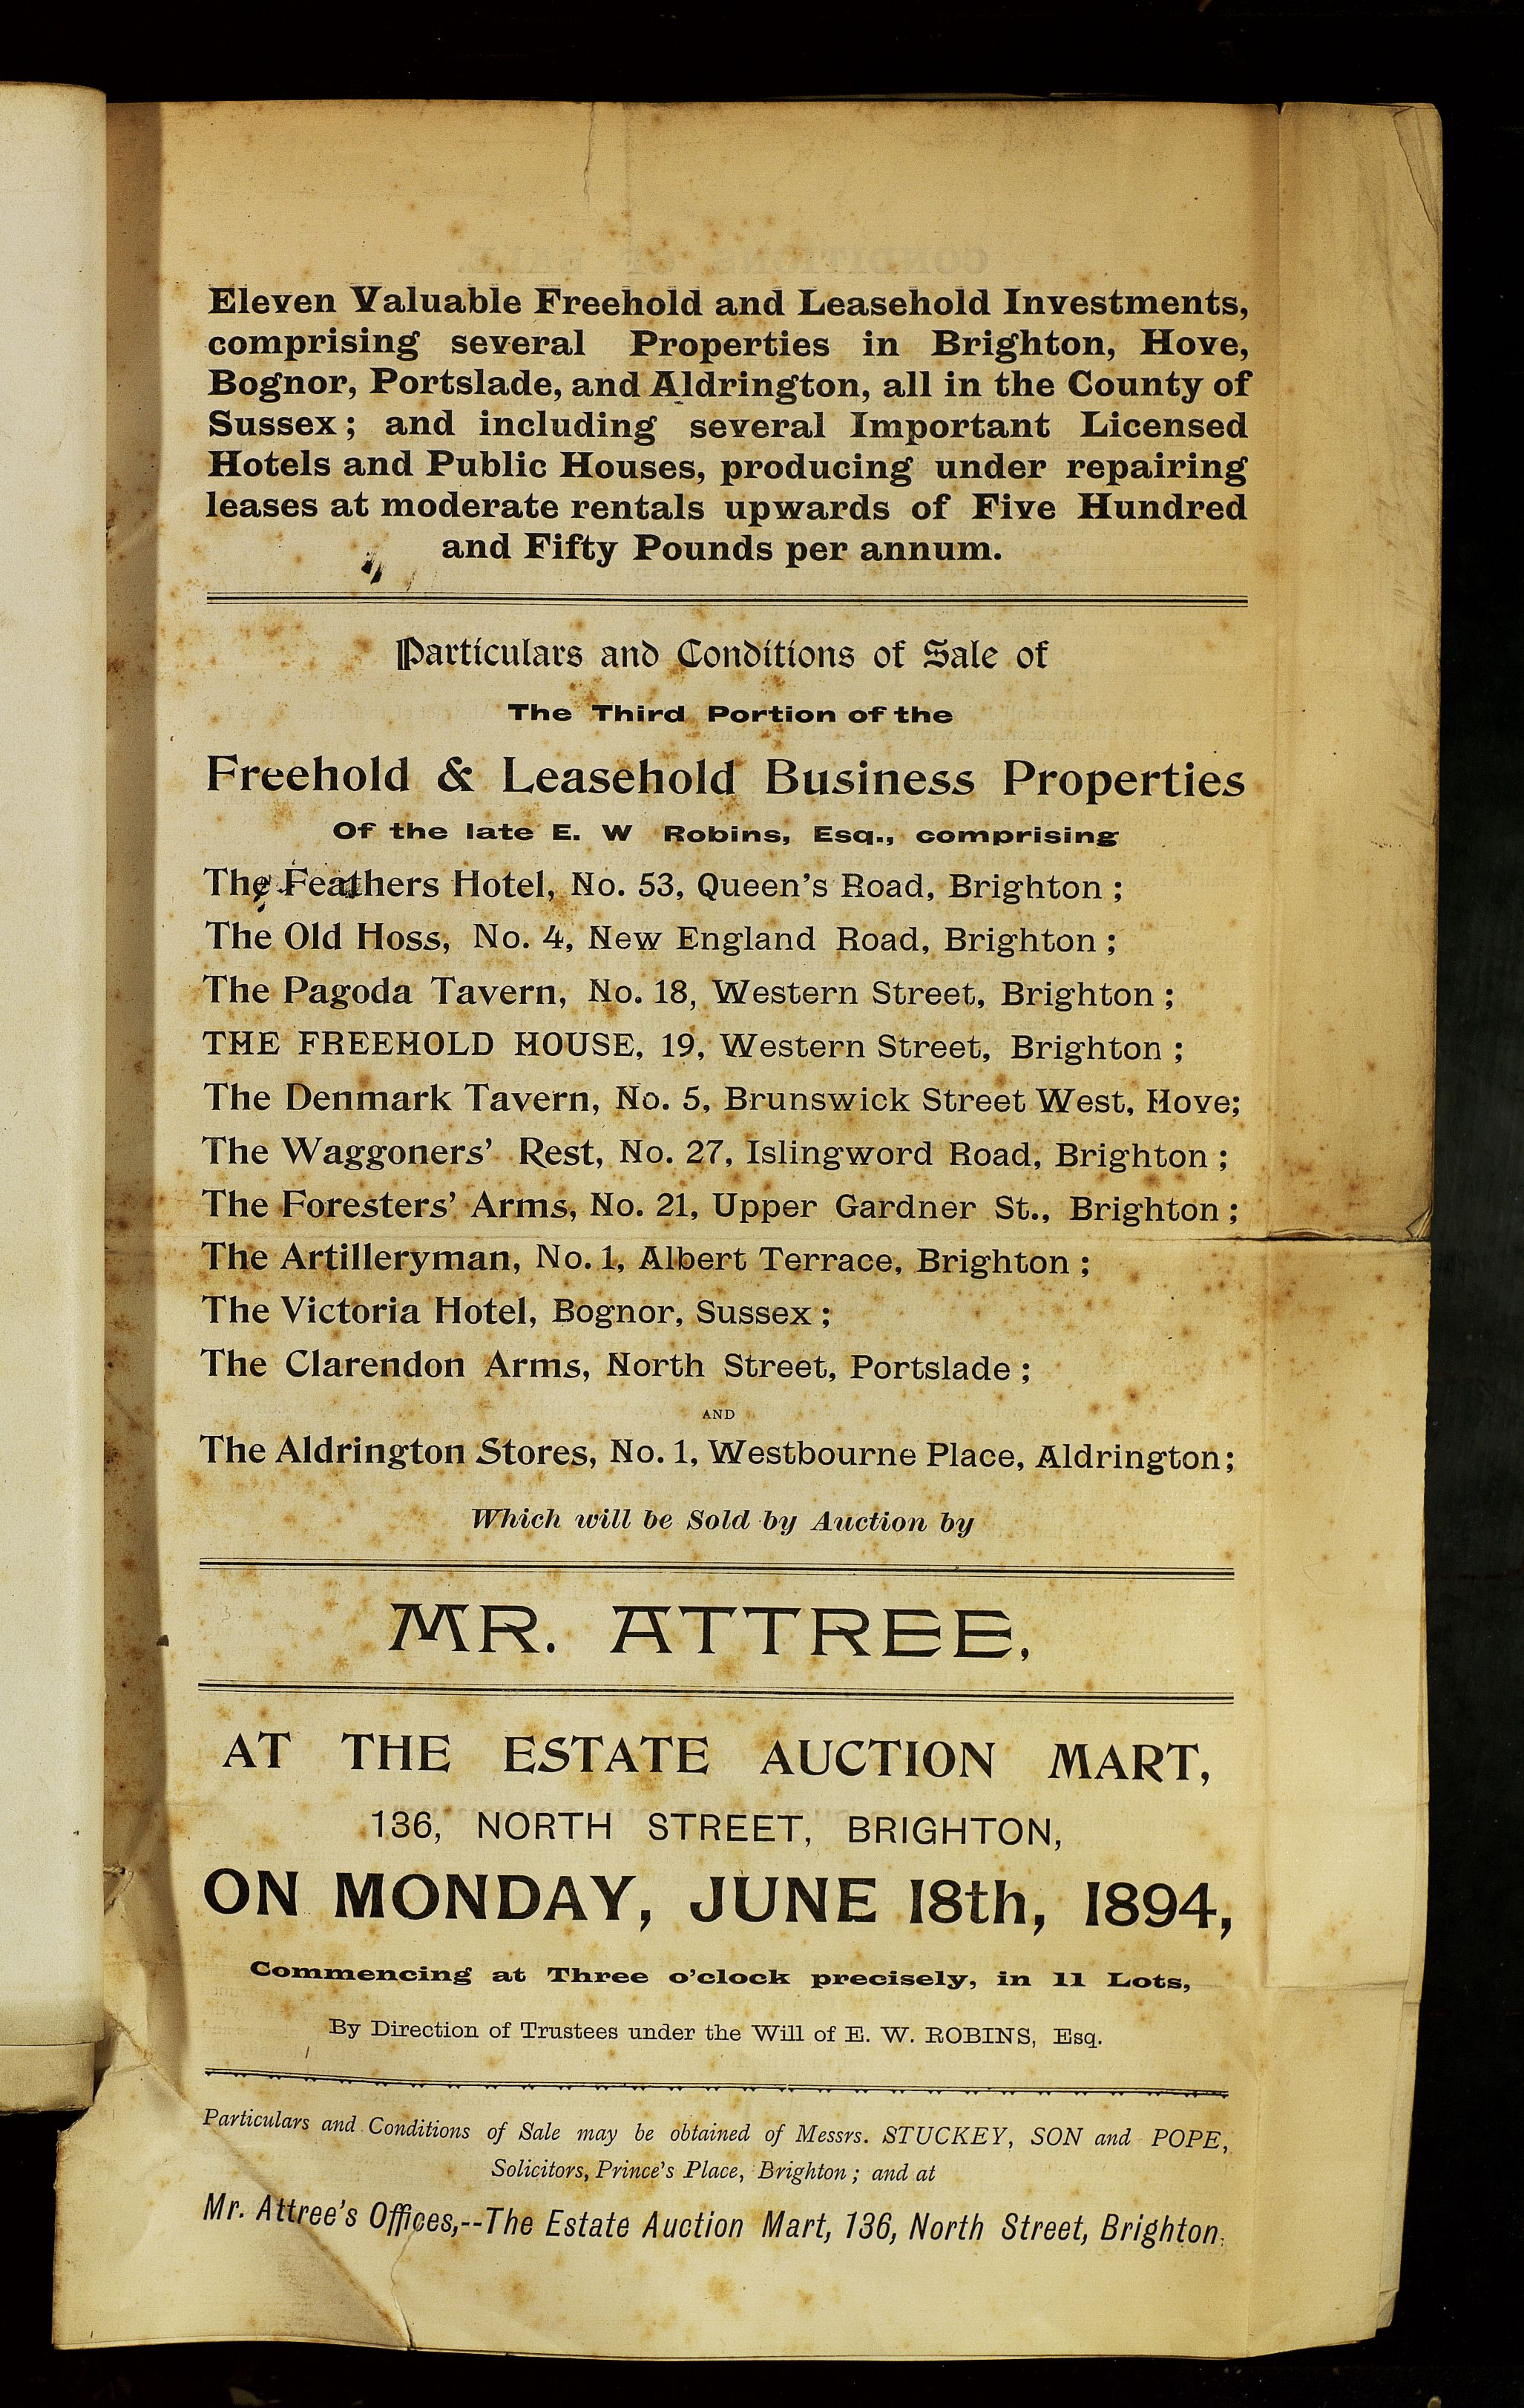 Eleven Valuable Freehold and Leasehold Investments,
comprising several Properties in Brighton, Hove,
Bognor, Portslade, and Aldrington, all in the County of
Sussex; and including several Important Licensed
Hotels and Public Houses, producing under repairing
leases at moderate rentals upwards of Five Hundred
and Fifty Pounds per annum.
Particulars and Conditions of Sale of
The Third Portion of the
Freehold & Leasehold Business Properties
Of the late E. W Robins, Esq., comprising
The Feathers Hotel, No. 53, Queen's Road, Brighton;
The Old Hoss, No. 4, New England Road, Brighton;
The Pagoda Tavern, No. 18, Western Street, Brighton;
THE FREEHOLD HOUSE, 19, Western Street, Brighton;
The Denmark Tavern, No. 5, Brunswick Street West, Hove;
The Waggoners' Rest, No. 27, Islingword Road, Brighton;
The Foresters' Arms, No. 21, Upper Gardner St., Brighton;
The Artilleryman, No. 1, Albert Terrace, Brighton;
The Victoria Hotel, Bognor, Sussex;
The Clarendon Arms, North Street, Portslade;
AND
The Aldrington Stores, No. 1, Westbourne Place, Aldrington;
Which will be Sold by Auction by
MR. ATTREE,
AT THE ESTATE AUCTION MART,
136, NORTH STREET, BRIGHTON,
ON MONDAY, JUNE 18th, 1894,
Commencing at Three o'clock precisely, in 11 Lots,
By Direction of Trustees under the Will of E. W. ROBINS, Esq.
Particulars and Conditions of Sale may be obtained of Messrs. STUCKEY, SON and POPE,
Solicitors, Prince's Place, Brighton; and at
Mr. Attree's Offices,--The Estate Auction Mart, 136, North Street, Brighton.